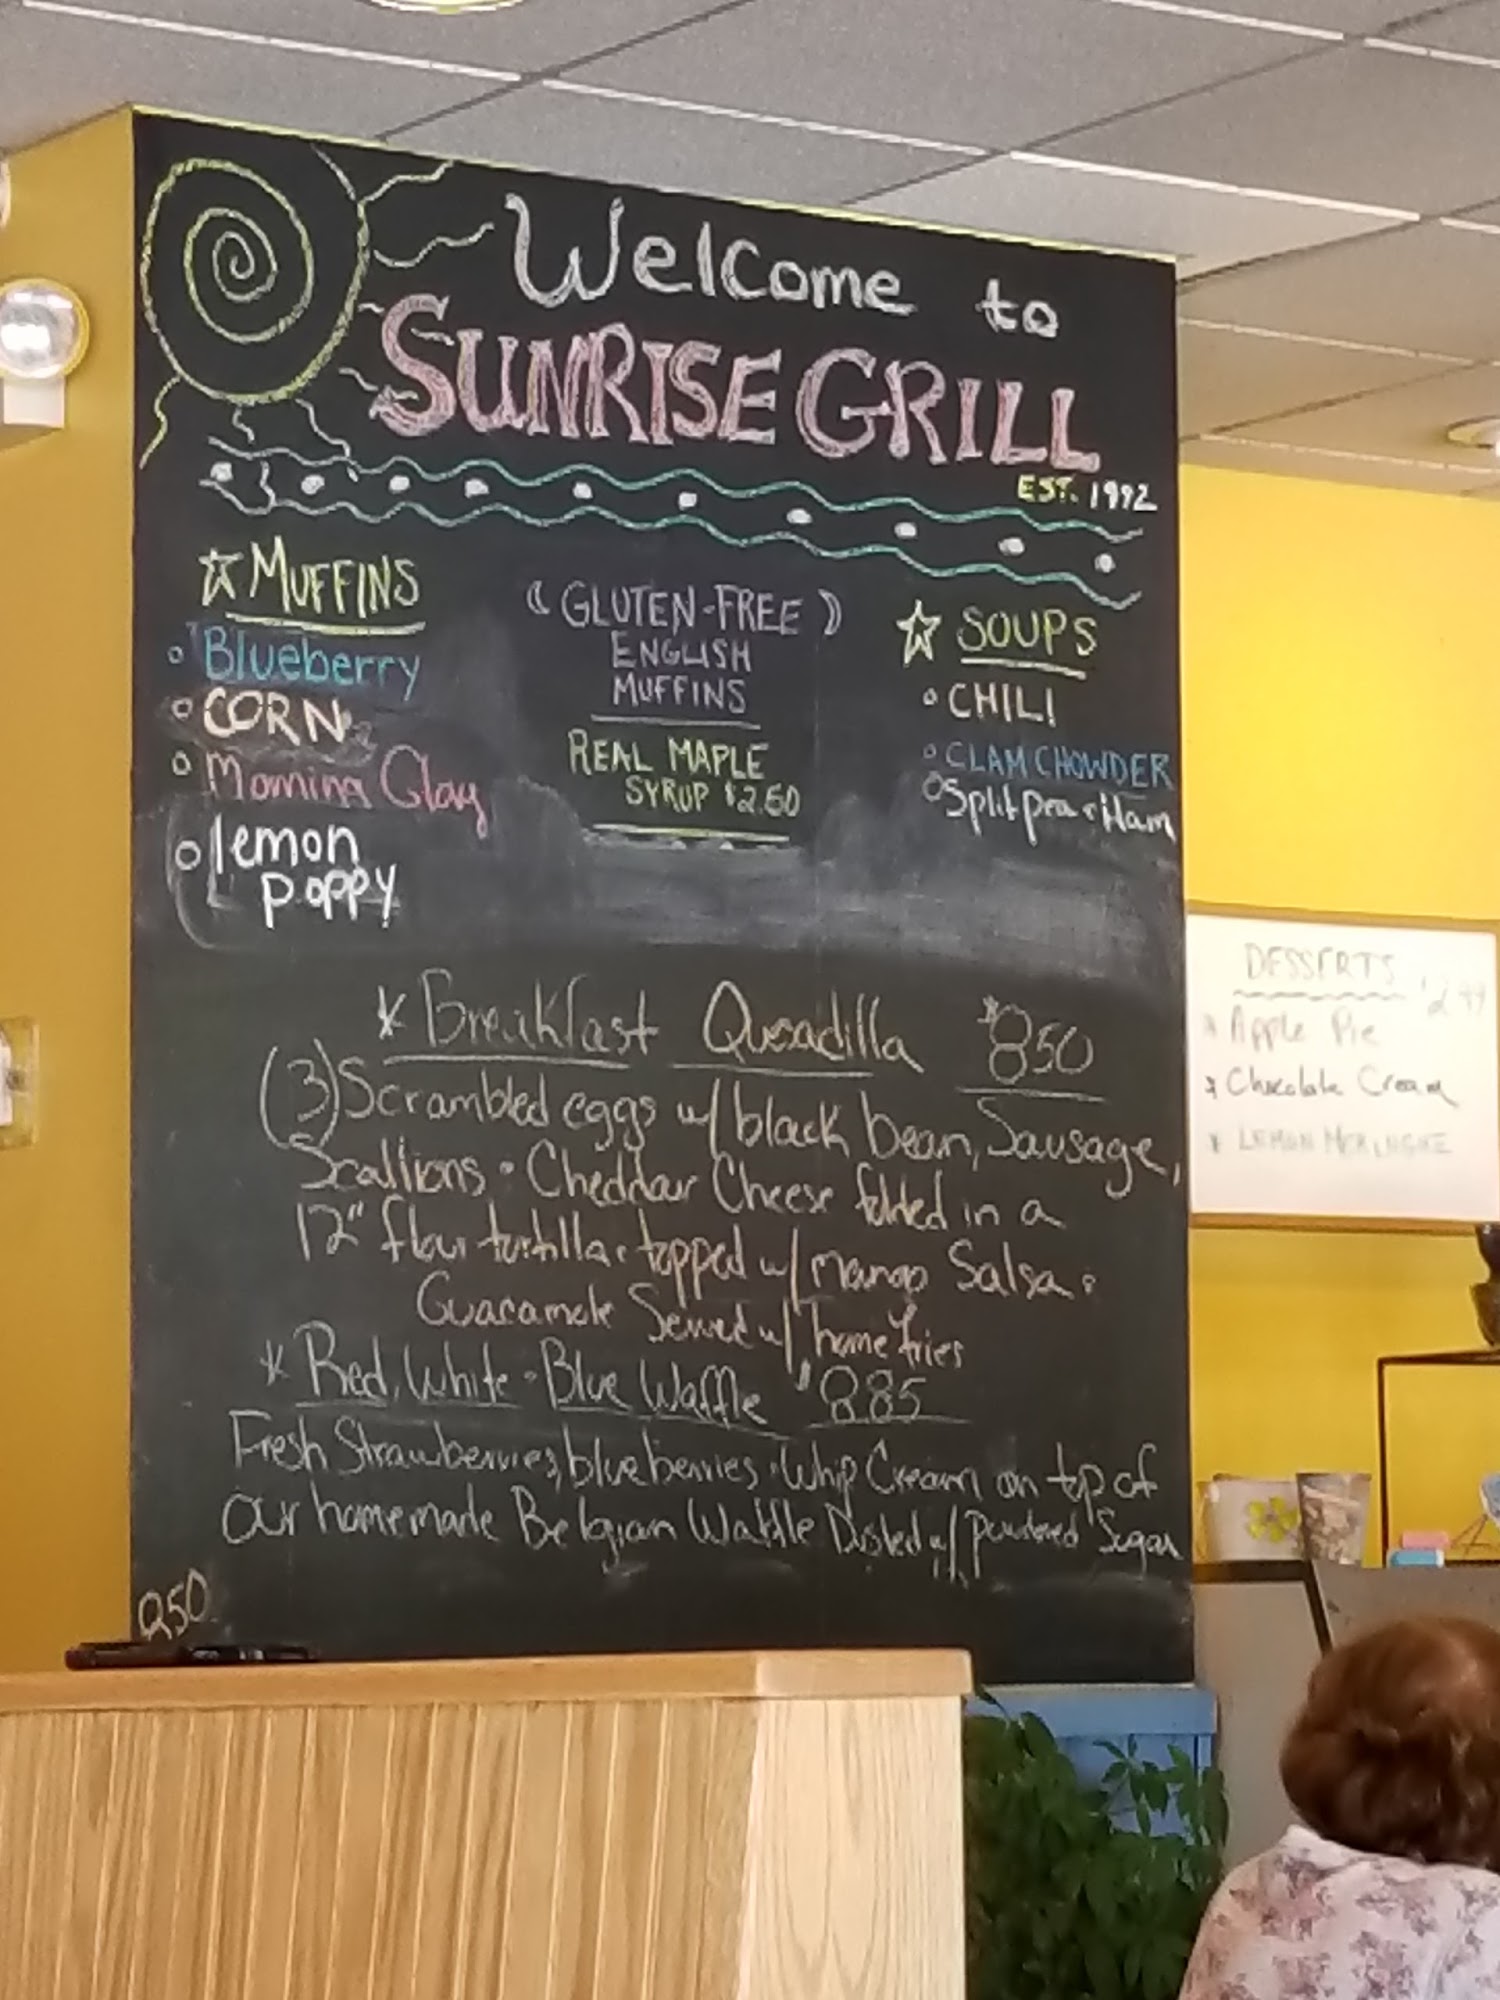 Welcome to
SUNRISE GRILL
EST. 1992
MUFFINS
Blueberry
CORN
Morning Glory
lemon
poppy
GLUTEN-FREE
ENGLISH
MUFFINS
REAL MAPLE
SYRUP $2.50
SOUPS
CHILI
CLAM CHOWDER
Split pea & Ham
* Breakfast Quesadilla $8.50
(3) Scrambled eggs w/ black bean, Sausage,
Scallions & Cheddar Cheese folded in a
12" flour tortilla & topped w/ mango Salsa &
Guacamole Served w/ home fries
* Red, White & Blue Waffle $8.85
Fresh Strawberries, blueberries & Whip Cream on top of
our homemade Belgian Waffle Dusted w/ powdered Sugar
250
DESSERTS $2.99
* Apple Pie
* Chocolate Cream
* LEMON MERINGUE